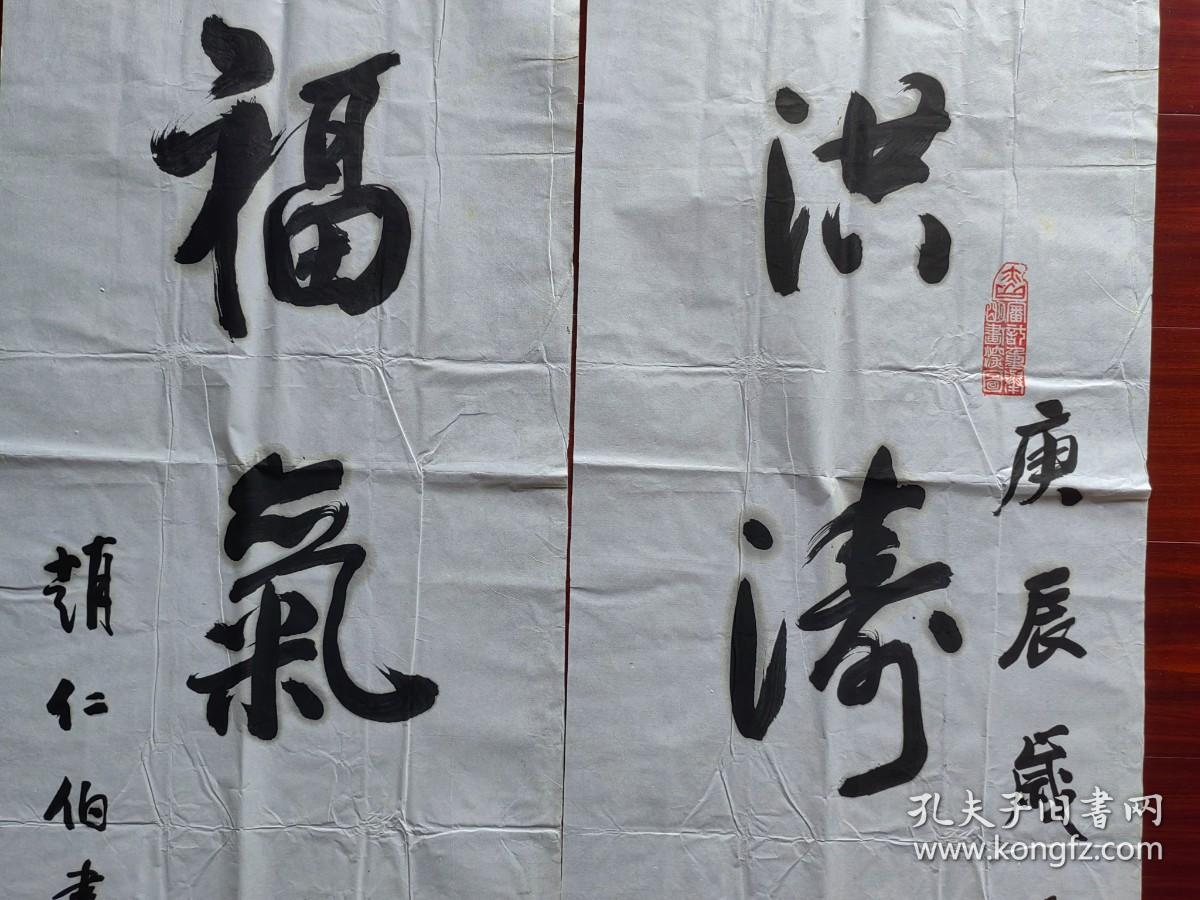 庚辰歲
洪濤
福氣
趙仁伯書
孔夫子旧書网
www.kongfz.com